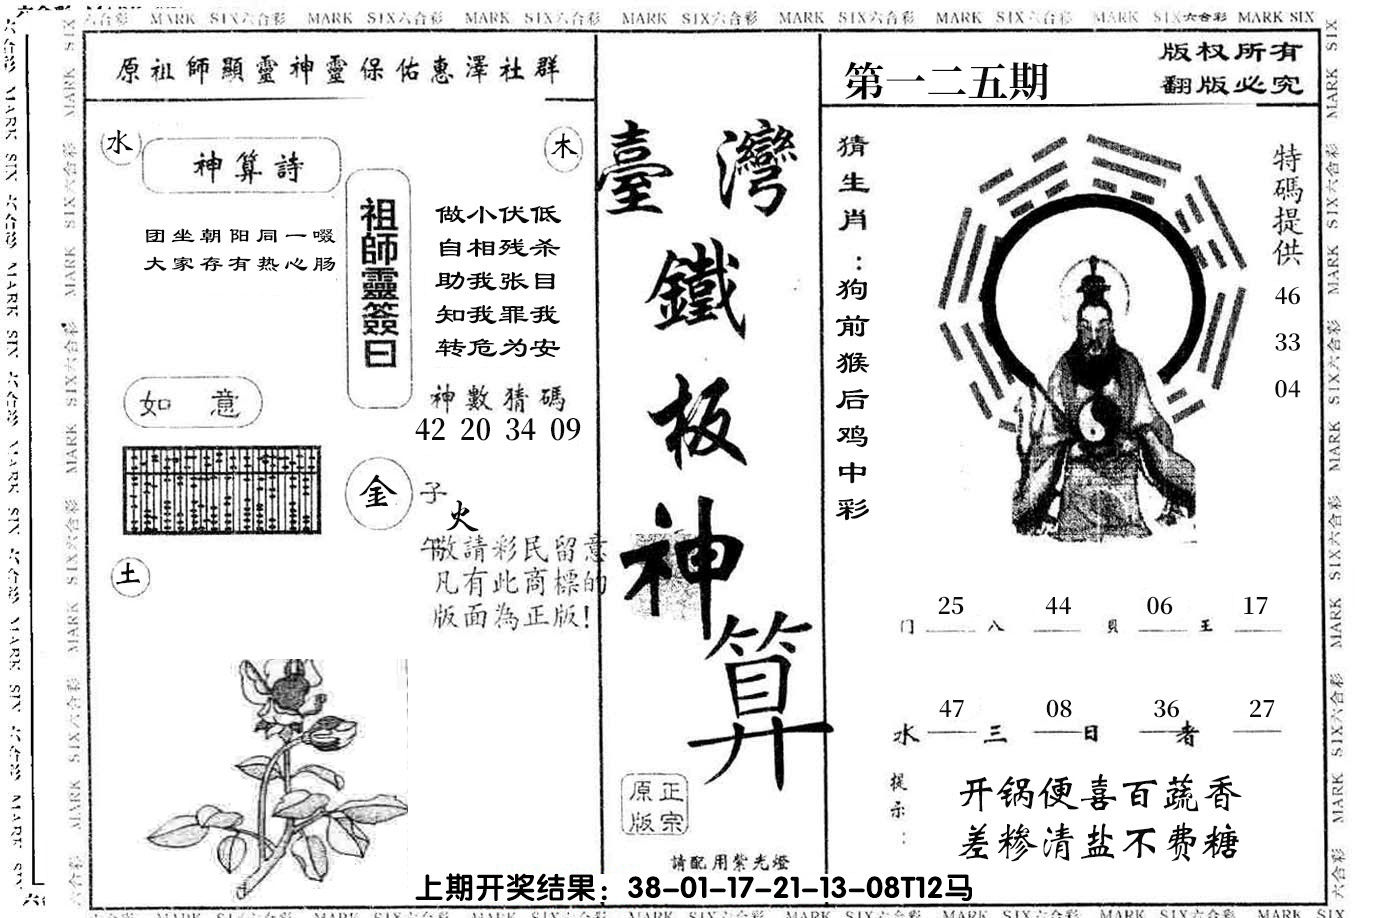 六合彩 MARK SIX 六合彩 MARK SIX 六合彩 MARK SIX 六合彩 MARK SIX 六合彩 MARK SIX 六合彩 MARK SIX 六合彩 MARK SIX 六合彩 MARK SIX
原祖師顯靈神靈保佑惠澤社群
水
神算詩
木
团坐朝阳同一啜
大家存有热心肠
祖師靈簽曰
做小伏低
自相残杀
助我张目
知我罪我
转危为安
神數猜碼
42 20 34 09
如意
金
子
火
午
敬請彩民留意
凡有此商標的
版面為正版!
土
臺灣
鐵
板
神
算
原正
版宗
請配用紫光燈
第一二五期
版权所有
翻版必究
猜生肖:狗前猴后鸡中彩
特碼提供
46
33
04
25 44 06 17
门 八 貝 王
47 08 36 27
水 三 日 者
提示:
开锅便喜百蔬香
差糁清盐不费糖
上期开奖结果：38-01-17-21-13-08T12马